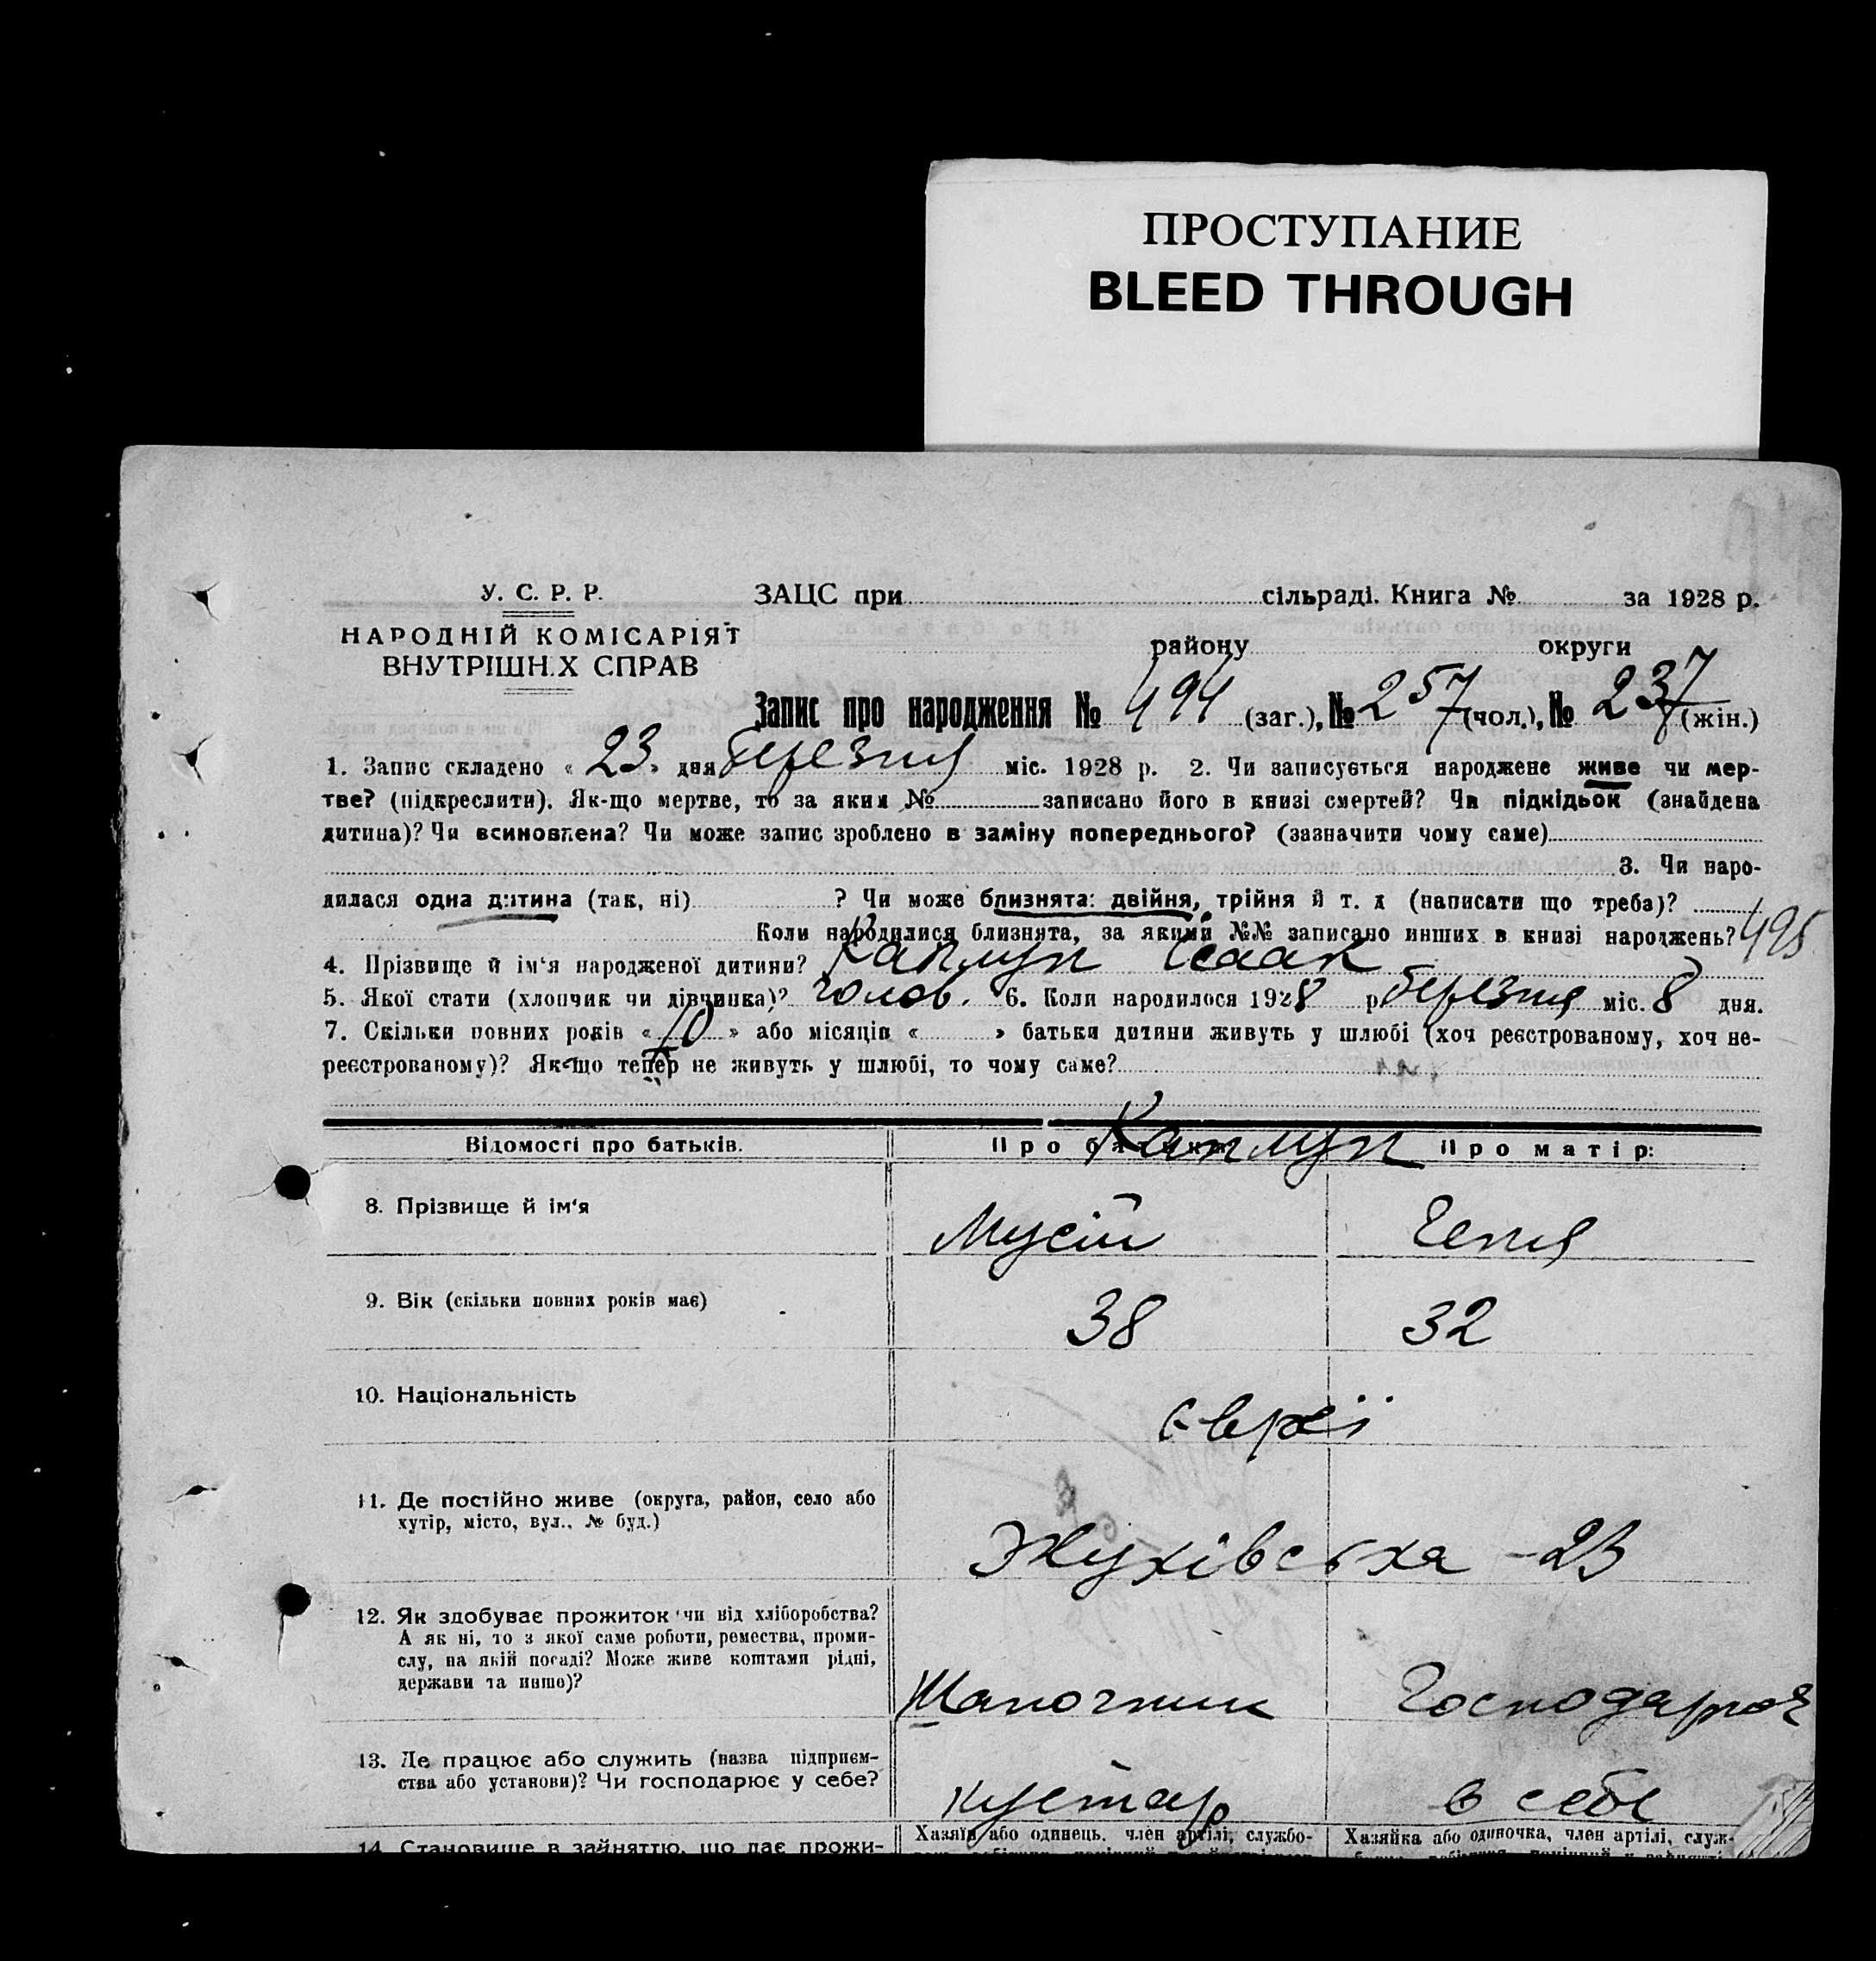 ПРОСТУПАНИЕ
BLEED THROUGH
У. С. Р. Р.
НАРОДНІЙ КОМІСАРІЯТ
ВНУТРІШН.Х СПРАВ
ЗАЦС при сільраді. Книга № за 1928 р.
району округи
Запис про народження № 494 (заг.), № 257 (чол.), № 237 (жін.)
1. Запис складено « 23 » дня березня міс. 1928 р. 2. Чи записується народжене живе чи мер-
тве? (підкреслити). Як-що мертве, то за яким № записано його в книзі смертей? Чи підкідьок (знайдена
дитина)? Чи всиновлена? Чи може запис зроблено в заміну попереднього? (зазначити чому саме)
3. Чи наро-
дилася одна дитина (так, ні) ? Чи може близнята: двійня, трійня й т. д (написати що треба)?
Коли народилися близнята, за якими №№ записано инших в книзі народжень? 495
4. Прізвище й ім'я народженої дитини? Каплун Ісаак
5. Якої стати (хлопчик чи дівчинка)? чолов. 6. Коли народилося 1928 р березня міс. 8 дня.
7. Скільки повних років « 10 » або місяців « » батьки дитини живуть у шлюбі (хоч реєстрованому, хоч не-
реєстрованому)? Як-що тепер не живуть у шлюбі, то чому саме?
Відомості про батьків. Про батька: Про матір:
Каплун
8. Прізвище й ім'я Мусій Геня
9. Вік (скільки повних років має) 38 32
10. Національність євреї
11. Де постійно живе (округа, район, село або
хутір, місто, вул., № буд.)
Жуківська - 23
12. Як здобуває прожиток чи від хліборобства?
А як ні, то з якої саме роботи, ремества, проми-
слу, на якій посаді? Може живе коштами рідні,
держави та инше)?
Шапочник Господарює
13. Де працює або служить (назва підприєм-
ства або установи)? Чи господарює у себе?
кустар в себе
14. Становище в зайняттю, що дає прожи-
Хазяїн або одинець, член артілі, службо-
Хазяйка або одиночка, член артілі, служ-